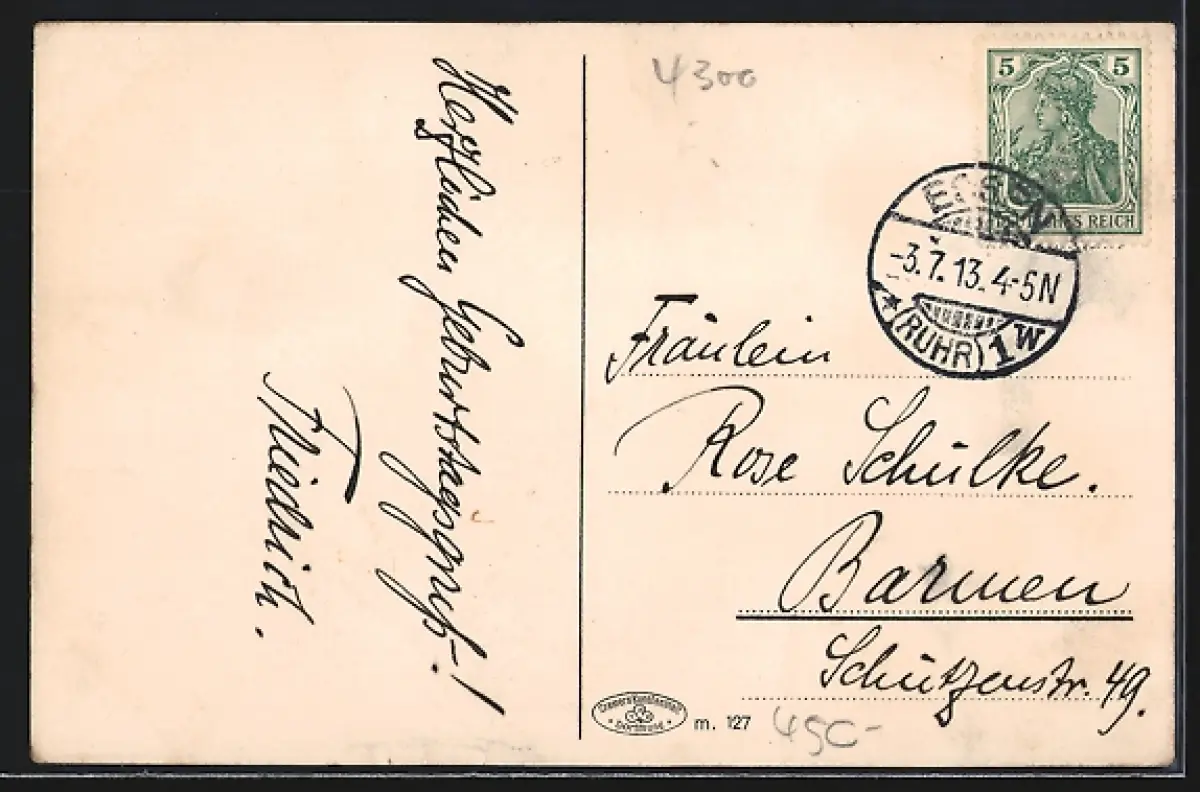 Herzlichen Geburtstagsgruß!
Friedrich.
4300
5 5
DEUTSCHES REICH
ESSEN
-3.7.13.4-5N
* (RUHR) 1W
Fräulein
Rose Schülke.
Barmen
Schützenstr. 49.
Cramers Kunstanstalt
Dortmund
m. 127
450-